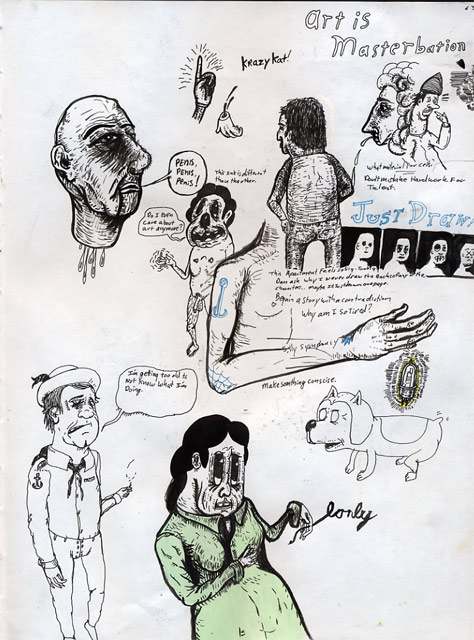 Art is
Masterbation
Krazy Kat!
Penis,
Penis,
Penis!
This ink is different
than the other.
Do I even
care about
art anymore?
what material
Dont mistake Hardwork For
Talent.
Just Draw.
This Apartment Feels
Dan ask why I never draw the backs of
character... maybe
Begain a story with a contradiction
Why am I so tired?
Silly Symphony
Make something concise.
I'm getting too old to
Not Know What I'm
Doing.
lonly